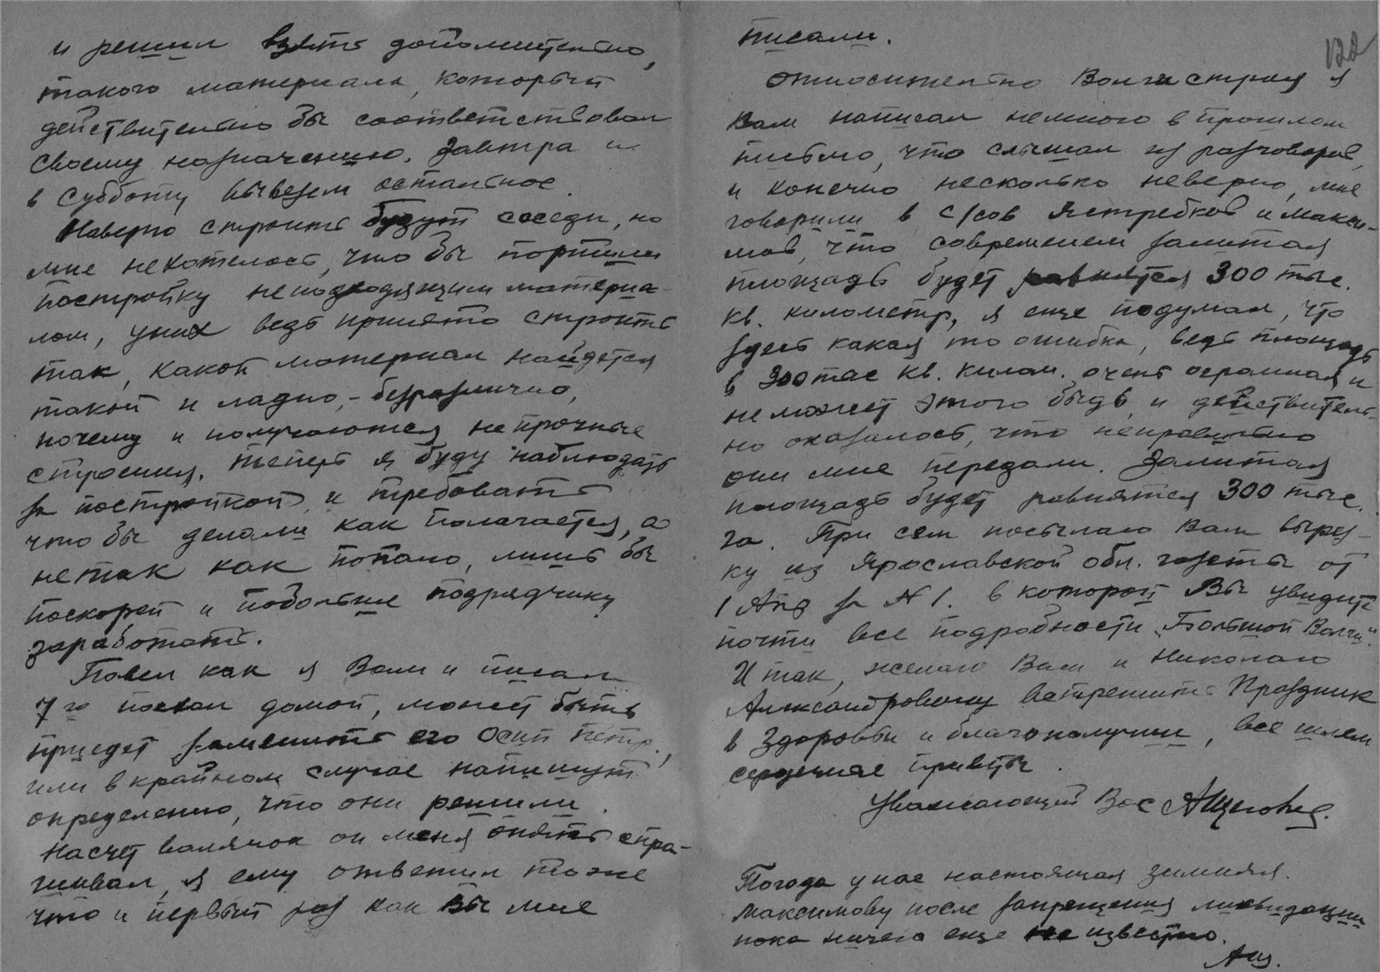 и решил взять дополнительно,
такого материала, который
действительно бы соответствовал
своему назначению. Завтра и
в субботу вывезем остальное.
Наверно строить будут соседи, но
мне нехотелось, что бы портили
постройку неподходящим материа-
лом, уних ведь принято строить
так, какой материал найдется
такой и ладно, - безразлично,
почему и получаются непрочные
строения. Теперь я буду наблюдать
за постройкой и требовать
что бы делали как полагается, а
нетак как попало, лишь бы
поскорей и побольше подрядчику
заработать.
Павел как я Вам и писал
7го поехал домой, может быть
приедет заменить его Осип Петр.,
или в крайном случае напишут
определенно, что они решили.
Насчет валячок он меня опять спра-
шивал, я ему ответил тоже
что и первый раз как Вы мне
писали.
122
Относительно Волгистроя я
Вам написал немного в прошлом
письмо, что слышал из разговоров,
и конечно несколько неверно, мне
говорили в с/сов Ястребков и Макси-
мов, что современем залитая
площадь будет равнятся 300 тыс.
кв. километр, я еще подумал, что
здесь какая то ошибка, ведь площадь
в 300 тыс кв. килом. очень огромная и
неможет этого быдь, и действитель-
но оказалось, что неправильно
они мне передали. Залитая
площадь будет равнятся 300 тыс.
га. При сем посылаю Вам вырез-
ку из Ярославской обл. газеты от
1 Янв за № 1. в которой Вы увидите
почти все подробности „Большой Волги"
И так, желаю Вам и Николаю
Александровичу встретить Праздник
в здоровьи и благополучии, все шлем
сердечные приветы.
Уважающий Вас АЩегловид.
Погода у нас настоящая зимняя.
Максимову после запрещения ликвидации
пока ничего еще не известно.
Ащ.